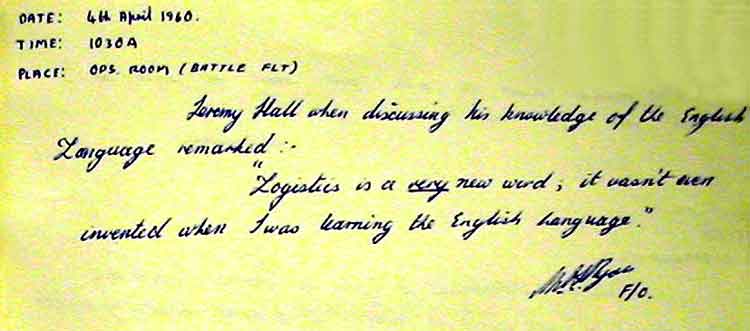 DATE: 4th April 1960.
TIME: 1030A
PLACE: OPS. ROOM (BATTLE FLT)
Jeremy Hall when discussing his knowledge of the English
Language remarked :-
"Logistics is a very new word; it wasn't even
invented when I was learning the English Language."
F/O.